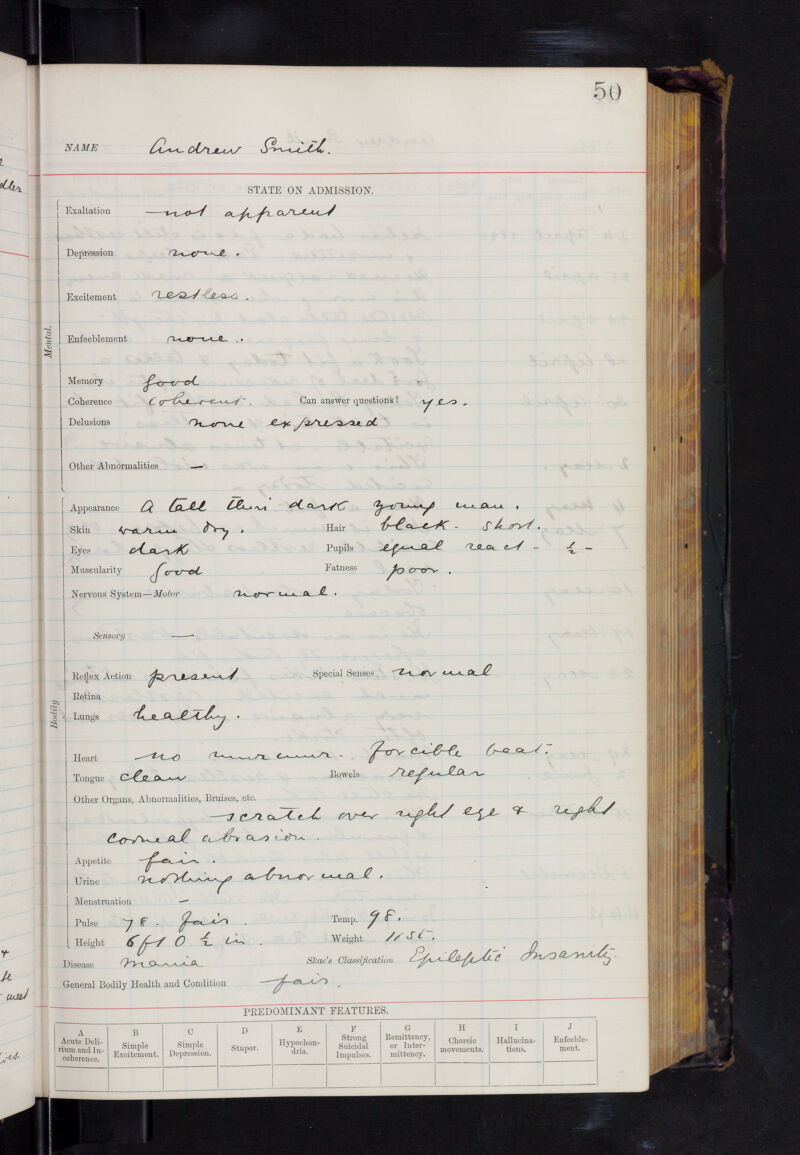 50
NAME Andrew Smith.
STATE ON ADMISSION.
Mental.
Exaltation — not apparent
Depression none.
Excitement restless.
Enfeeblement none.
Memory Good
Coherence Coherent. Can answer questions? yes.
Delusions none expressed
Other Abnormalities —
Bodily
Appearance A tall thin dark young man.
Skin warm dry. Hair black - short.
Eyes dark Pupils equal react - ½ -
Muscularity Good Fatness poor.
Nervous System—Motor normal.
Sensory —
Reflex Action present Special Senses normal
Retina
Lungs healthy.
Heart — no murmur - forcible beat.
Tongue clean Bowels regular
Other Organs, Abnormalities, Bruises, etc.
scratch over right eye & right
corneal abrasion.
Appetite fair.
Urine nothing abnormal.
Menstruation —
Pulse 78. fair. Temp. 98.
Height 6ft 0 ½ in. Weight 11 St.
Disease Mania Skae's Classification Epileptic Insanity.
General Bodily Health and Condition fair.
PREDOMINANT FEATURES.
A B C D E F G H I J
Acute Delirium and Incoherence. Simple Excitement. Simple Depression. Stupor. Hypochondria. Strong Suicidal Impulses. Remittency, or Intermittency. Choreic movements. Hallucinations. Enfeeblement.